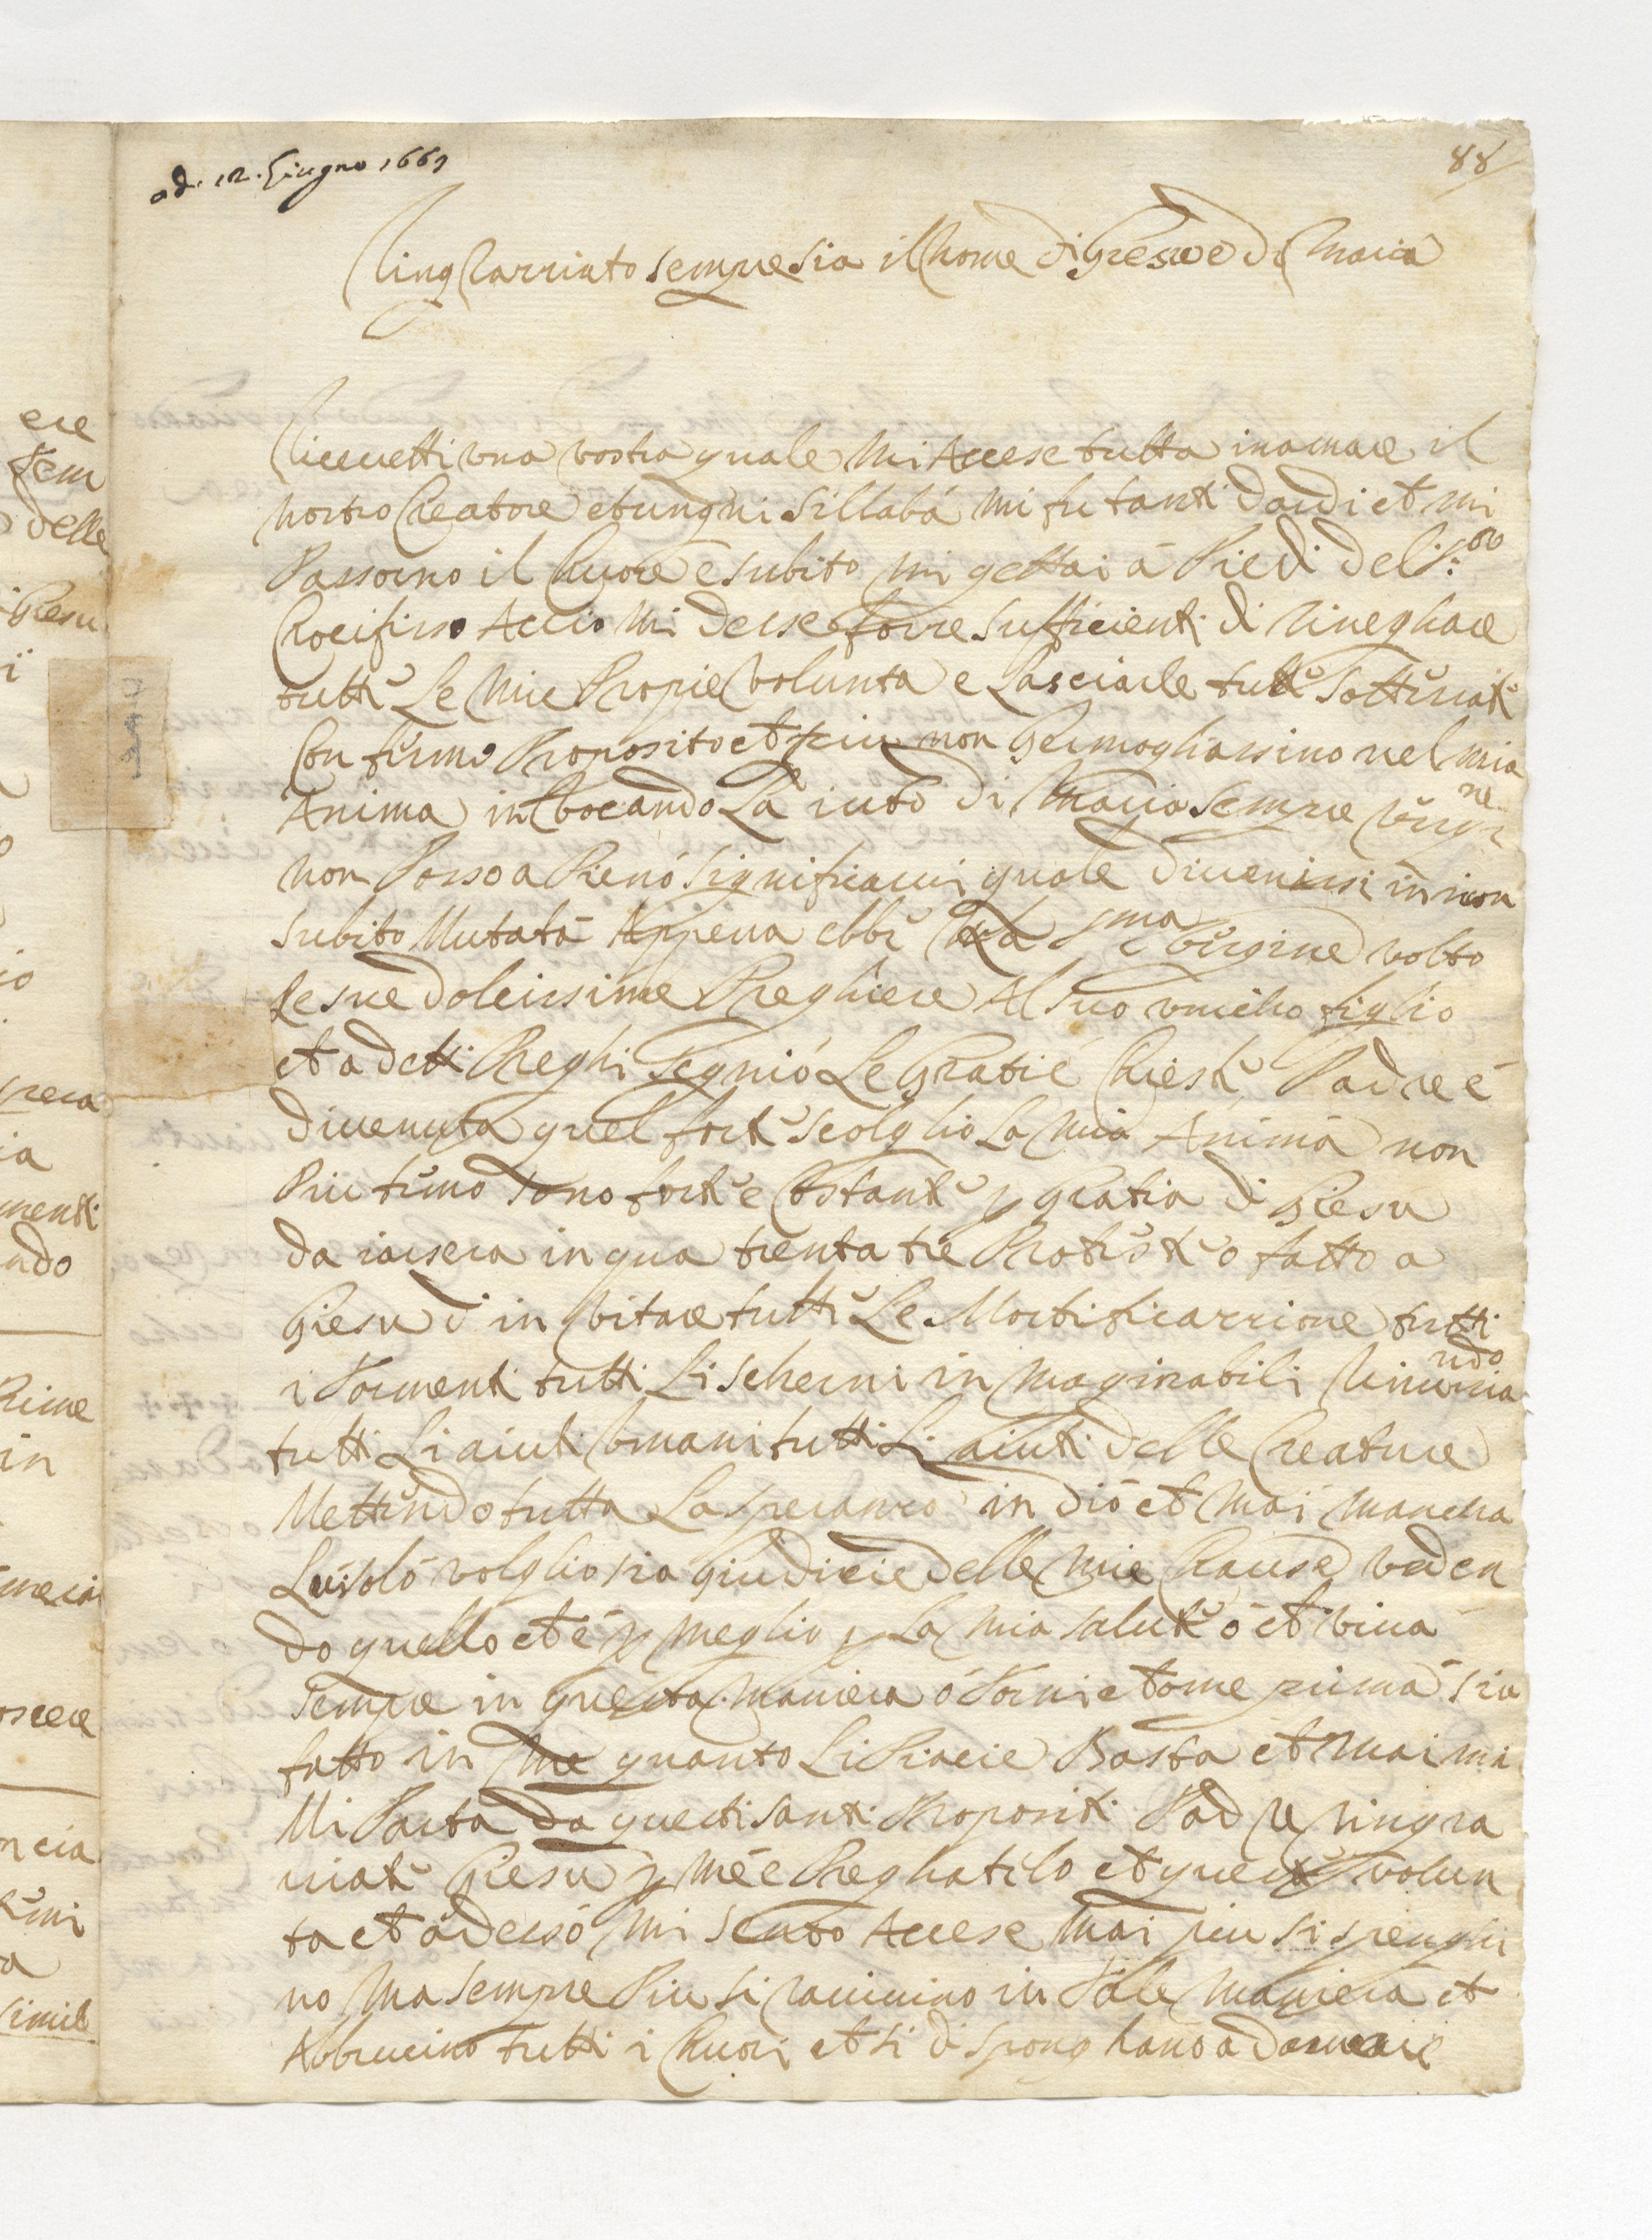 adi 12. Giugno 1669
88
Ringrarriato sempre sia il nome di Giesu e di Maria
Riceuetti una vostra quale mi Accese tutta in amare il
nostro Creatore et ungni Sillaba mi fu tanti dardi et mi
Passorno il Cuore e subito mi gettai a Piedi del S.mo
Crocifisso Accio mi desse forre sufficienti di rineghare
tutte Le mie Propie volunta e Lasciarle tutte Sotterrate
Con fermo Proposito et piu non Germogliassino nel mia
Anima in vocando La iuto di Maria Sempre vergi ne
non Posso a Pieno Significarui quale diuenissi in
subito Mutata Appena ebbe La S.ma vergine volto
Le sue dolcissime Preghiere Al suo unicho figlio
et a detti Preghi Segnió Le Gratie Chieste Padre é
diuenuta quel forte Scolglio La mia Anima non
Piu temo sono forte e Costante p Gratia di Giesu
da iarsera in qua trenta tre Proteste o fatto a
Giesu d in vitare tutte Le Mortificarrione tutti
i tormenti tutti Li scherni in maginabili Rinuntia ndo
tutti Li aiuti vmani tutti Li aiuti delle Creature
Mettendo tutta La speranra in dió et mai mancha
Lui solo volglio sia Giudicie delle mie Cause veden
do quello et é p meglio p La mia salute ó et viua
sempre in questa maniera ó torni et ome prima sia
fatto in me quanto Li Piacie Basta et mai mi
Mi Parta da questi santi Propositi Padre ringra
riate Giesu p me é Preghatelo et queste volun
ta et adesso mi sento Accese mai piu si spenghi
no ma sempre Piu si rauiuino in tale maniera et
Abbrucino tutti i Cuori et si dispong hano ad amare
ere
tem
delle
Giesu
ia
menti
ndo
in